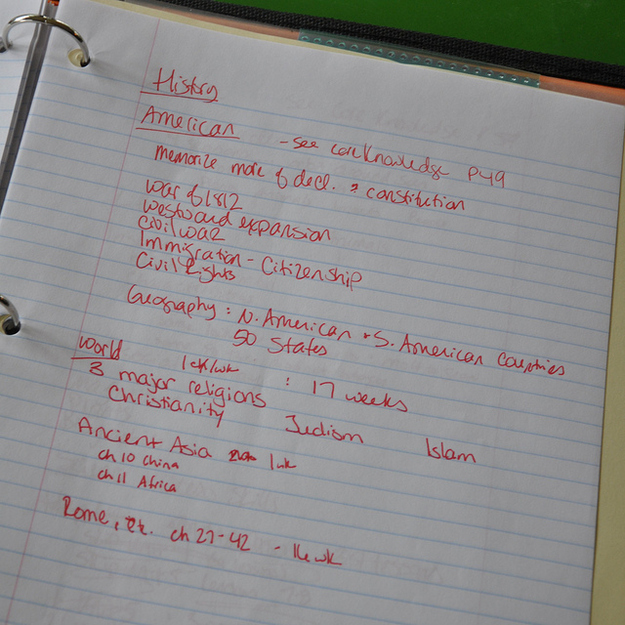 History
American - see Core Knowledge p49
memorize more of decl. & constitution
War of 1812
westward expansion
Civil war
Immigration - Citizenship
Civil Rights
Geography : N. American & S. American Countries
50 States
World
1 ch/wk : 17 weeks
3 major religions
Christianity Judism Islam
Ancient Asia 1 wk
ch 10 China
ch 11 Africa
Rome, etc. ch 27-42 - 16 wk